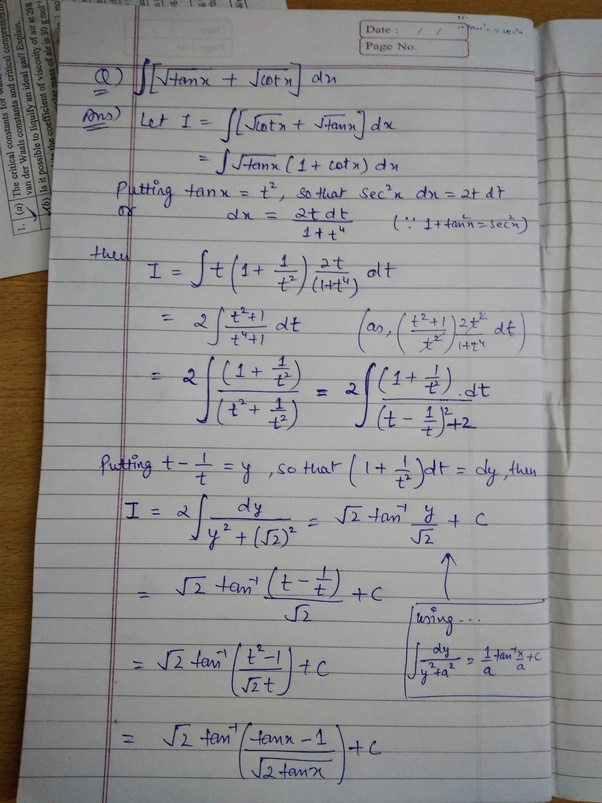 1. (a) The critical constants for wat
van der Waals constants and critical compressi
van der Waals constants and critical
(b) Is it possible to liquify an ideal gas? Explain.
the coefficient of viscosity of air at 298
mass of air = 30 g mol⁻¹
Date : / /
Page No.
Q) ∫[√tanx + √cotx] dx
Ans) Let I = ∫[√cotx + √tanx] dx
= ∫√tanx (1 + cotx) dx
Putting tanx = t², so that sec²x dx = 2t dt
or dx = 2t dt / 1+t⁴ (∵ 1+tan²x = sec²x)
then I = ∫ t (1 + 1/t²) 2t/(1+t⁴) dt
= 2∫ t²+1 / t⁴+1 dt (as, (t²+1 / t²) 2t² / 1+t⁴ dt)
= 2∫ (1 + 1/t²) / (t² + 1/t²) = 2∫ (1 + 1/t²) .dt / (t - 1/t)² + 2
Putting t - 1/t = y, so that (1 + 1/t²)dt = dy, then
I = 2∫ dy / y² + (√2)² = √2 tan⁻¹ y/√2 + C
= √2 tan⁻¹ (t - 1/t) / √2 + C
using...
∫ dy / y²+a² = 1/a tan⁻¹ x/a + C
= √2 tan⁻¹ (t²-1 / √2 t) + C
= √2 tan⁻¹ (tanx - 1 / √2 tanx) + C